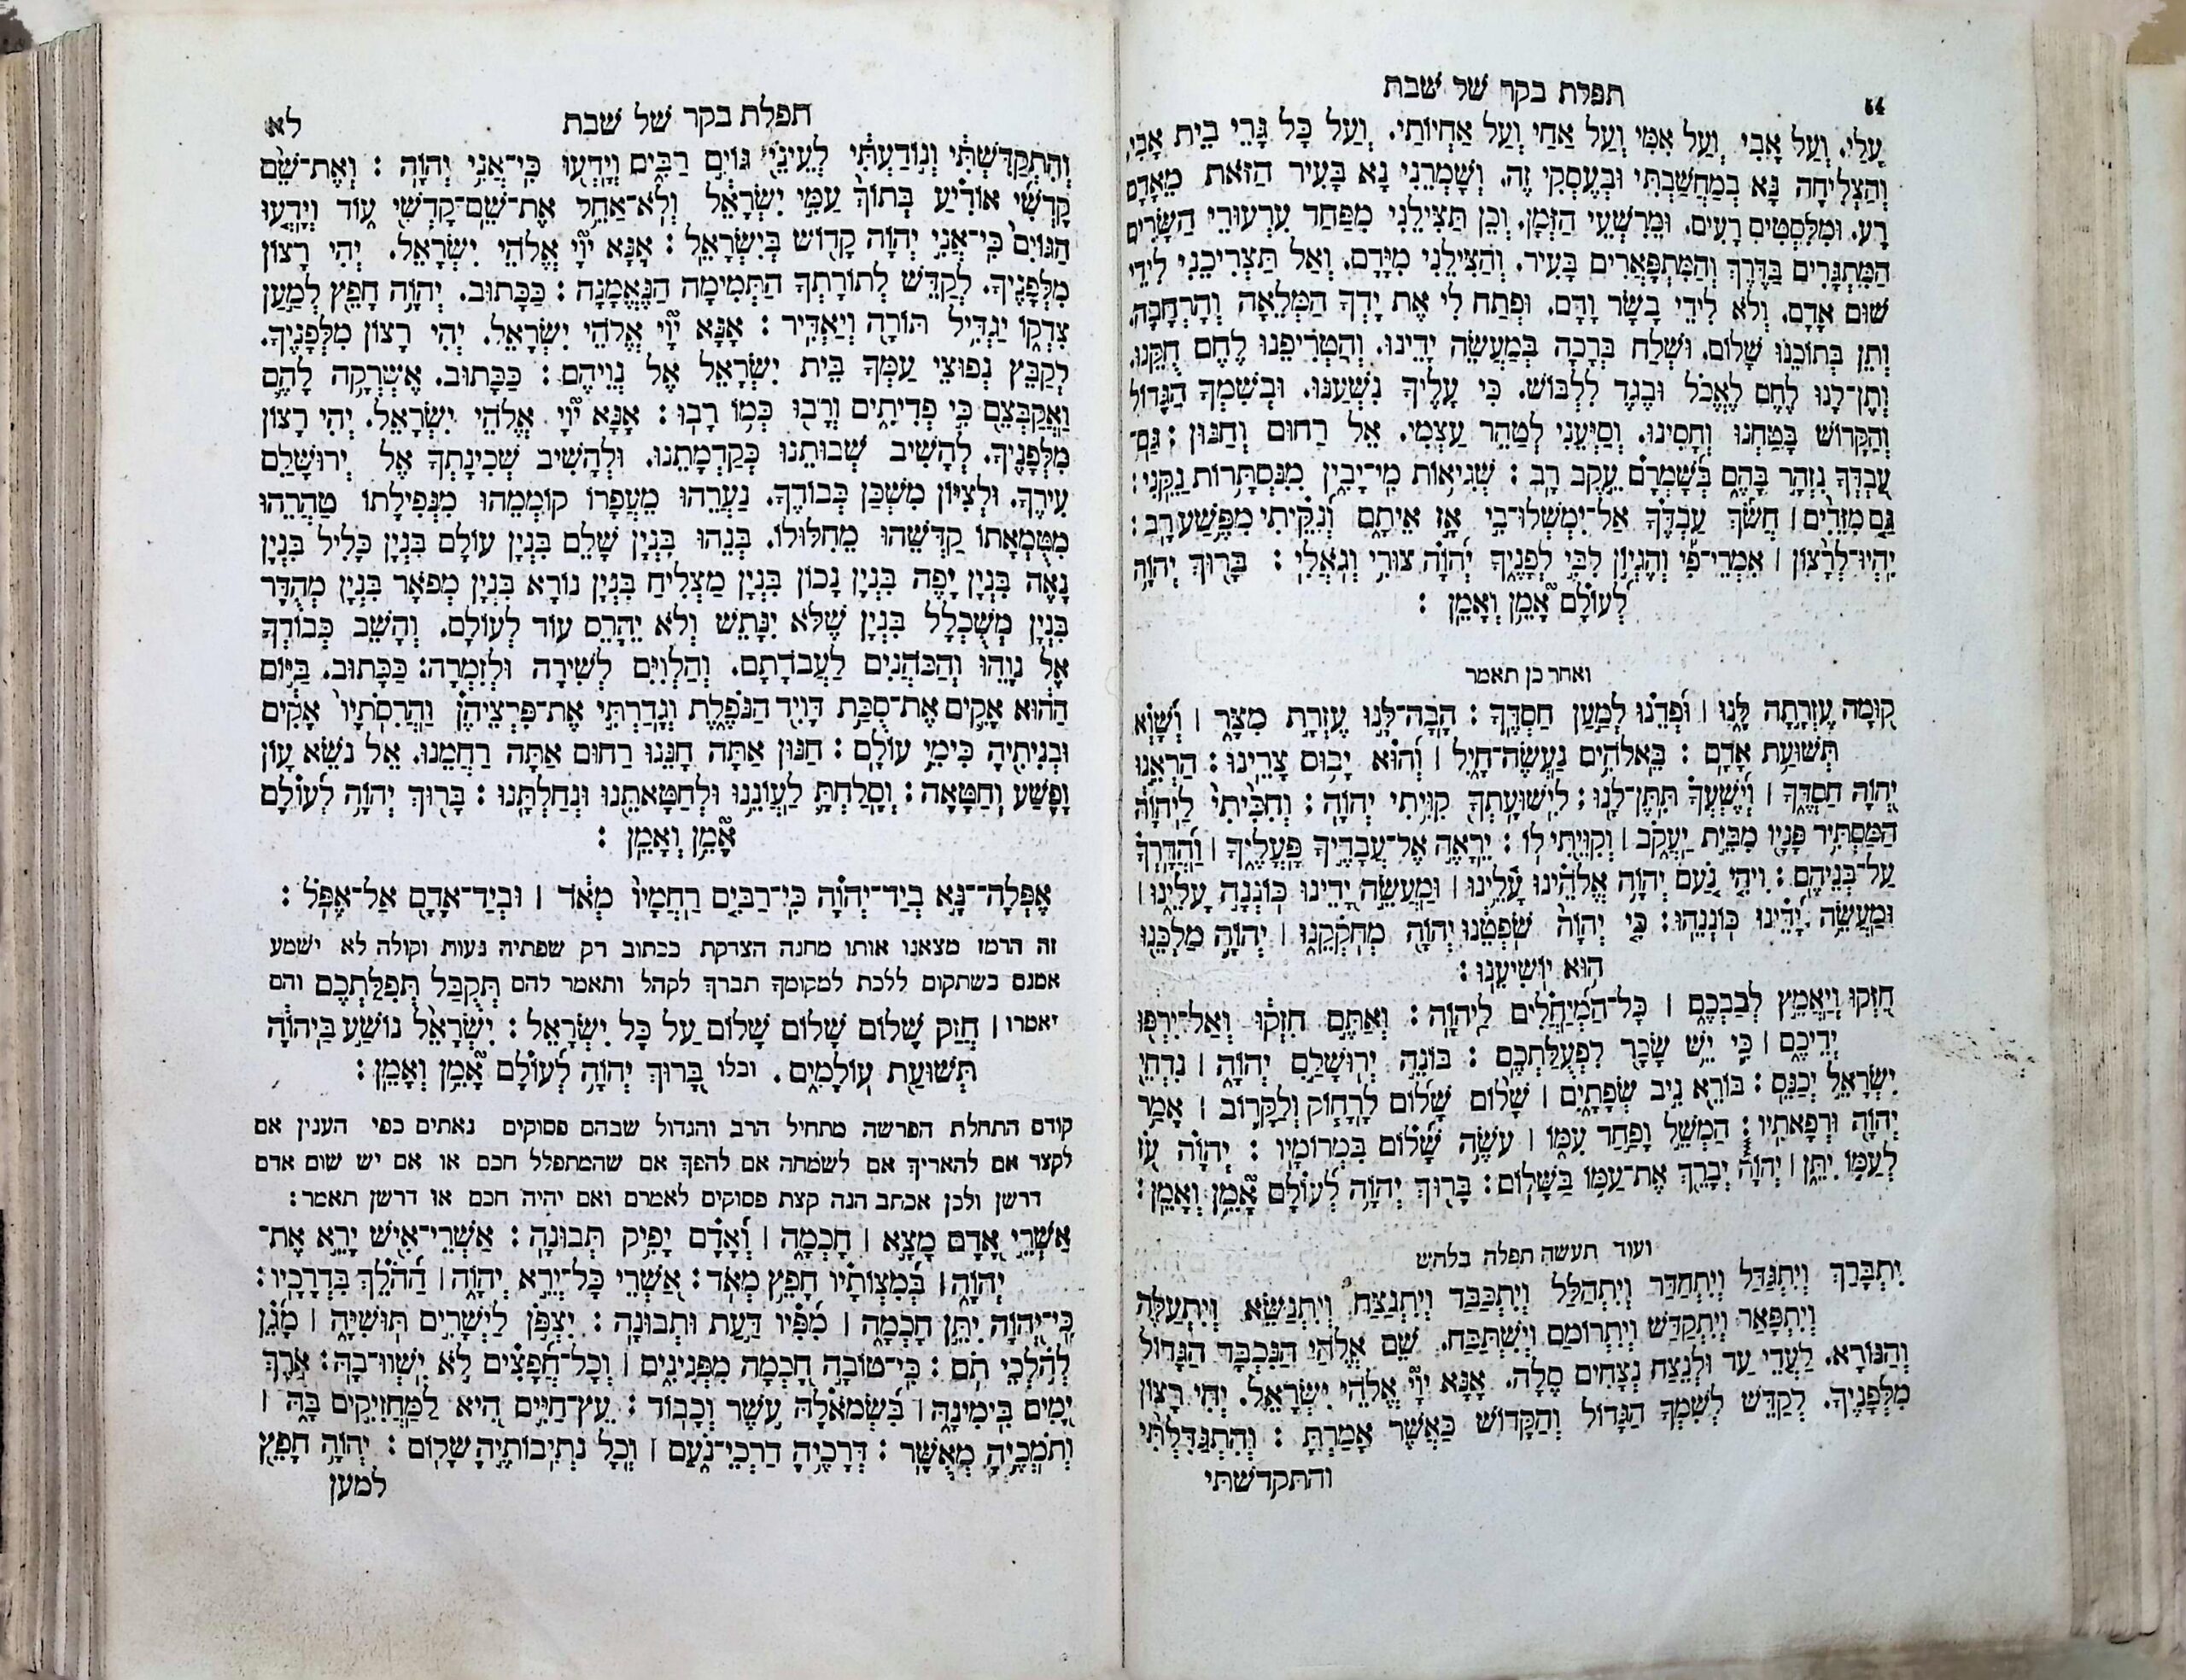 64
תפלת בקר של שבת
עָלַי. וְעַל אָבִי וְעַל אִמִּי וְעַל אַחַי וְעַל אַחְיוֹתַי. וְעַל כָּל גָּרֵי בֵית אָבִי,
וְהַצְלִיחָה נָּא בְמַחֲשַׁבְתִּי וּבְעֶסְקִי זֶה. וְשָׁמְרֵנִי נָא בָּעִיר הַזֹּאת מֵאָדָם
רָע. וּמִלִּסְטִים רָעִים. וּמֵרִשְׁעֵי הַזְּמָן. וְכֵן תַּצִּילֵנִי מִפַּחַד עִרְעוּרֵי הַשָּׂרִים
הַמִּתְגָּרִים בַּדֶּרֶךְ וְהַמִּתְפָּאֲרִים בָּעִיר. וְהַצִּילֵנִי מִיָּדָם. וְאַל תַּצְרִיכֵנִי לִידֵי
שׁוּם אָדָם. וְלֹא לִידֵי בָשָׂר וָדָם. וּפְתַח לִי אֶת יָדְךָ הַמְּלֵאָה וְהָרְחָבָה.
וְתֵן בְּתוֹכֵנוּ שָׁלוֹם. וּשְׁלַח בְּרָכָה בְּמַעֲשֵׂה יָדֵינוּ. וְהַטְרִיפֵנוּ לֶחֶם חֻקֵּנוּ.
וְתֶן־לָנוּ לֶחֶם לֶאֱכֹל וּבֶגֶד לִלְבּוֹשׁ. כִּי עָלֶיךָ נִשְׁעַנּוּ. וּבְשִׁמְךָ הַגָּדוֹל
וְהַקָּדוֹשׁ בָּטַחְנוּ וְחָסִינוּ. וְסַיְּעֵנִי לְטַהֵר עַצְמִי. אֵל רַחוּם וְחַנּוּן : גַּם־
עַבְדְּךָ נִזְהָר בָּהֶם בְּשָׁמְרָם עֵקֶב רָב : שְׁגִיאוֹת מִי־יָבִין מִנִּסְתָּרוֹת נַקֵּנִי :
גַּם מִזֵּדִים | חֲשֹׂךְ עַבְדֶּךָ אַל־יִמְשְׁלוּ־בִי אָז אֵיתָם וְנִקֵּיתִי מִפֶּשַׁע רָב :
יִהְיוּ־לְרָצוֹן | אִמְרֵי־פִי וְהֶגְיוֹן לִבִּי לְפָנֶיךָ יְהוָה צוּרִי וְגֹאֲלִי : בָּרוּךְ יְהוָה
לְעוֹלָם אָמֵן וְאָמֵן :
ואחר כן תאמר
קוּמָה עֶזְרָתָה לָּנוּ | וּפְדֵנוּ לְמַעַן חַסְדֶּךָ : הָבָה־לָּנוּ עֶזְרָת מִצָּר | וְשָׁוְא
תְּשׁוּעַת אָדָם : בֵּאלֹהִים נַעֲשֶׂה־חָיִל | וְהוּא יָבוּס צָרֵינוּ : הַרְאֵנוּ
יְהוָה חַסְדֶּךָ | וְיֶשְׁעֲךָ תִּתֶּן־לָנוּ : לִישׁוּעָתְךָ קִוִּיתִי יְהוָה : וְחִכִּיתִי לַיהוָה
הַמַּסְתִּיר פָּנָיו מִבֵּית יַעֲקֹב | וְקִוֵּיתִי לוֹ : יֵרָאֶה אֶל־עֲבָדֶיךָ פָעֳלֶךָ | וַהֲדָרְךָ
עַל־בְּנֵיהֶם : וִיהִי נֹעַם יְהוָה אֱלֹהֵינוּ עָלֵינוּ | וּמַעֲשֵׂה יָדֵינוּ כּוֹנְנָה עָלֵינוּ |
וּמַעֲשֵׂה יָדֵינוּ כּוֹנְנֵהוּ : כִּי יְהוָה שֹׁפְטֵנוּ יְהוָה מְחֹקְקֵנוּ | יְהוָה מַלְכֵּנוּ
הוּא יוֹשִׁיעֵנוּ :
חִזְקוּ וְיַאֲמֵץ לְבַבְכֶם | כָּל־הַמְיַחֲלִים לַיהוָה : וְאַתֶּם חִזְקוּ וְאַל־יִרְפּוּ
יְדֵיכֶם | כִּי יֵשׁ שָׂכָר לִפְעֻלַּתְכֶם : בּוֹנֵה יְרוּשָׁלִַם יְהוָה | נִדְחֵי
יִשְׂרָאֵל יְכַנֵּס : בּוֹרֵא נִיב שְׂפָתָיִם | שָׁלוֹם שָׁלוֹם לָרָחוֹק וְלַקָּרוֹב | אָמַר
יְהוָה וּרְפָאתִיו : הַמְשֵׁל וָפַחַד עִמּוֹ | עֹשֶׂה שָׁלוֹם בִּמְרוֹמָיו : יְהוָה עֹז
לְעַמּוֹ יִתֵּן | יְהוָה יְבָרֵךְ אֶת־עַמּוֹ בַשָּׁלוֹם : בָּרוּךְ יְהוָה לְעוֹלָם אָמֵן וְאָמֵן :
ועוד תעשה תפלה בלחש
יִתְבָּרַךְ וְיִתְגַּדַּל וְיִתְהַדַּר וְיִתְהַלַּל וְיִתְכַּבַּד וְיִתְנַצַּח וְיִתְנַשֵּׂא וְיִתְעַלֶּה
וְיִתְפָּאַר וְיִתְקַדַּשׁ וְיִתְרוֹמַם וְיִשְׁתַּבַּח. שֵׁם אֱלֹהַי הַנִּכְבָּד הַגָּדוֹל
וְהַנּוֹרָא. לַעֲדֵי עַד וּלְנֵצַח נְצָחִים סֶלָה. אָנָּא יְוָי אֱלֹהֵי יִשְׂרָאֵל. יְהִי רָצוֹן
מִלְּפָנֶיךָ. לְקַדֵּשׁ לְשִׁמְךָ הַגָּדוֹל וְהַקָּדוֹשׁ כַּאֲשֶׁר אָמַרְתָּ : וְהִתְגַּדִּלְתִּי
והתקדשתי
תפלת בקר של שבת
לא
וְהִתְקַדִּשְׁתִּי וְנוֹדַעְתִּי לְעֵינֵי גּוֹיִם רַבִּים וְיָדְעוּ כִּי־אֲנִי יְהוָה : וְאֶת־שֵׁם
קָדְשִׁי אוֹדִיעַ בְּתוֹךְ עַמִּי יִשְׂרָאֵל וְלֹא־אַחֵל אֶת־שֵׁם־קָדְשִׁי עוֹד וְיָדְעוּ
הַגּוֹיִם כִּי־אֲנִי יְהוָה קָדוֹשׁ בְּיִשְׂרָאֵל : אָנָּא יְוָי אֱלֹהֵי יִשְׂרָאֵל. יְהִי רָצוֹן
מִלְּפָנֶיךָ. לְקַדֵּשׁ לְתוֹרָתְךָ הַתְּמִימָה הַנֶּאֱמָנָה : כַּכָּתוּב. יְהוָה חָפֵץ לְמַעַן
צִדְקוֹ יַגְדִּיל תּוֹרָה וְיַאְדִּיר : אָנָּא יְוָי אֱלֹהֵי יִשְׂרָאֵל. יְהִי רָצוֹן מִלְּפָנֶיךָ.
לְקַבֵּץ נְפוּצֵי עַמְּךָ בֵּית יִשְׂרָאֵל אֶל נְוֵיהֶם : כַּכָּתוּב. אֶשְׁרְקָה לָהֶם
וַאֲקַבְּצֵם כִּי פְדִיתִים וְרָבוּ כְּמוֹ רָבוּ : אָנָּא יְוָי אֱלֹהֵי יִשְׂרָאֵל. יְהִי רָצוֹן
מִלְּפָנֶיךָ. לְהָשִׁיב שְׁבוּתֵנוּ כְּקַדְמָתֵנוּ. וּלְהָשִׁיב שְׁכִינָתְךָ אֶל יְרוּשָׁלַם
עִירֶךָ. וּלְצִיּוֹן מִשְׁכַּן כְּבוֹדֶךָ. נַעֲרֵהוּ מֵעֲפָרוֹ קוֹמְמֵהוּ מִנְּפִילָתוֹ טַהֲרֵהוּ
מִטֻּמְאָתוֹ קַדְּשֵׁהוּ מֵחִלּוּלוֹ. בְּנֵהוּ בִּנְיָן שָׁלֵם בִּנְיָן עוֹלָם בִּנְיָן כָּלִיל בִּנְיָן
נָאֶה בִּנְיָן יָפֶה בִּנְיָן נָכוֹן בִּנְיָן מַצְלִיחַ בִּנְיָן נוֹרָא בִּנְיָן מְפֹאָר בִּנְיָן מְהֻדָּר
בִּנְיָן מְשֻׁכְלָל בִּנְיָן שֶׁלֹּא יִנָּתֵשׁ וְלֹא יֵהָרֵס עוֹד לְעוֹלָם. וְהָשֵׁב כְּבוֹדְךָ
אֶל נָוֵהוּ וְהַכֹּהֲנִים לַעֲבֹדָתָם. וְהַלְוִיִּם לְשִׁירָה וּלְזִמְרָה: כַּכָּתוּב. בַּיּוֹם
הַהוּא אָקִים אֶת־סֻכַּת דָּוִיד הַנֹּפֶלֶת וְגָדַרְתִּי אֶת־פִּרְצֵיהֶן וַהֲרִסֹתָיו אָקִים
וּבְנִיתִיהָ כִּימֵי עוֹלָם : חַנּוּן אַתָּה חָנֵּנוּ רַחוּם אַתָּה רַחֲמֵנוּ. אֵל נֹשֵׂא עָוֹן
וָפֶשַׁע וְחַטָּאָה : וְסָלַחְתָּ לַעֲוֹנֵנוּ וּלְחַטָּאתֵנוּ וּנְחַלְתָּנוּ : בָּרוּךְ יְהוָה לְעוֹלָם
אָמֵן וְאָמֵן :
אֶפְּלָה־נָּא בְיַד־יְהוָה כִּי־רַבִּים רַחֲמָיו מְאֹד | וּבְיַד־אָדָם אַל־אֶפֹּל :
זה הרמז מצאנו אותו מחנה הצדקת ככתוב רק שפתיה נעות וקולה לא ישמע
אמנם כשתקום ללכת למקומך תברך לקהל ותאמר להם תְּקֻבַּל תְּפִלַּתְכֶם והם
יאמרו | חֲזַק שָׁלוֹם שָׁלוֹם שָׁלוֹם עַל כָּל יִשְׂרָאֵל : יִשְׂרָאֵל נוֹשַׁע בַּיהוָה
תְּשׁוּעַת עוֹלָמִים. וכלו בָּרוּךְ יְהוָה לְעוֹלָם אָמֵן וְאָמֵן :
קודם התחלת הפרשה מתחיל הרב והגדול שבהם פסוקים נאתים כפי הענין אם
לקצר אם להאריך אם לשמחה אם להפך אם שהמתפלל חכם או אם יש שום אדם
דרשן ולכן אכתב הנה קצת פסוקים לאמרם ואם יהיה חכם או דרשן תאמר :
אַשְׁרֵי אָדָם מָצָא | חָכְמָה | וְאָדָם יָפִיק תְּבוּנָה : אַשְׁרֵי־אִישׁ יָרֵא אֶת־
יְהוָה | בְּמִצְוֹתָיו חָפֵץ מְאֹד : אַשְׁרֵי כָּל־יְרֵא יְהוָה | הַהֹלֵךְ בִּדְרָכָיו :
כִּי־יְהוָה יִתֵּן חָכְמָה | מִפִּיו דַּעַת וּתְבוּנָה : יִצְפֹּן לַיְשָׁרִים תּוּשִׁיָּה | מָגֵן
לְהֹלְכֵי תֹם : כִּי־טוֹבָה חָכְמָה מִפְּנִינִים | וְכָל־חֲפָצִים לֹא יִשְׁווּ־בָהּ : אֹרֶךְ
יָמִים בִּימִינָהּ | בִּשְׂמֹאלָהּ עֹשֶׁר וְכָבוֹד : עֵץ־חַיִּים הִיא לַמַּחֲזִיקִים בָּהּ |
וְתֹמְכֶיהָ מְאֻשָּׁר : דְּרָכֶיהָ דַרְכֵי־נֹעַם | וְכָל נְתִיבוֹתֶיהָ שָׁלוֹם : יְהוָה חָפֵץ
למען